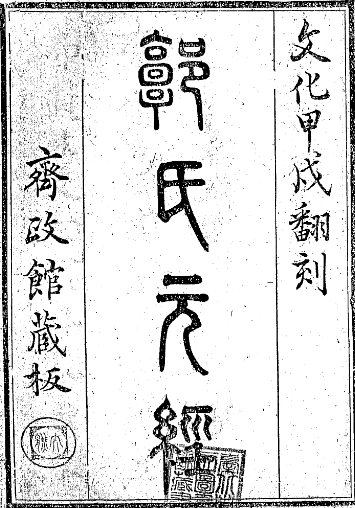 文化甲戌翻刻
郭氏元經
齊政館蔵板